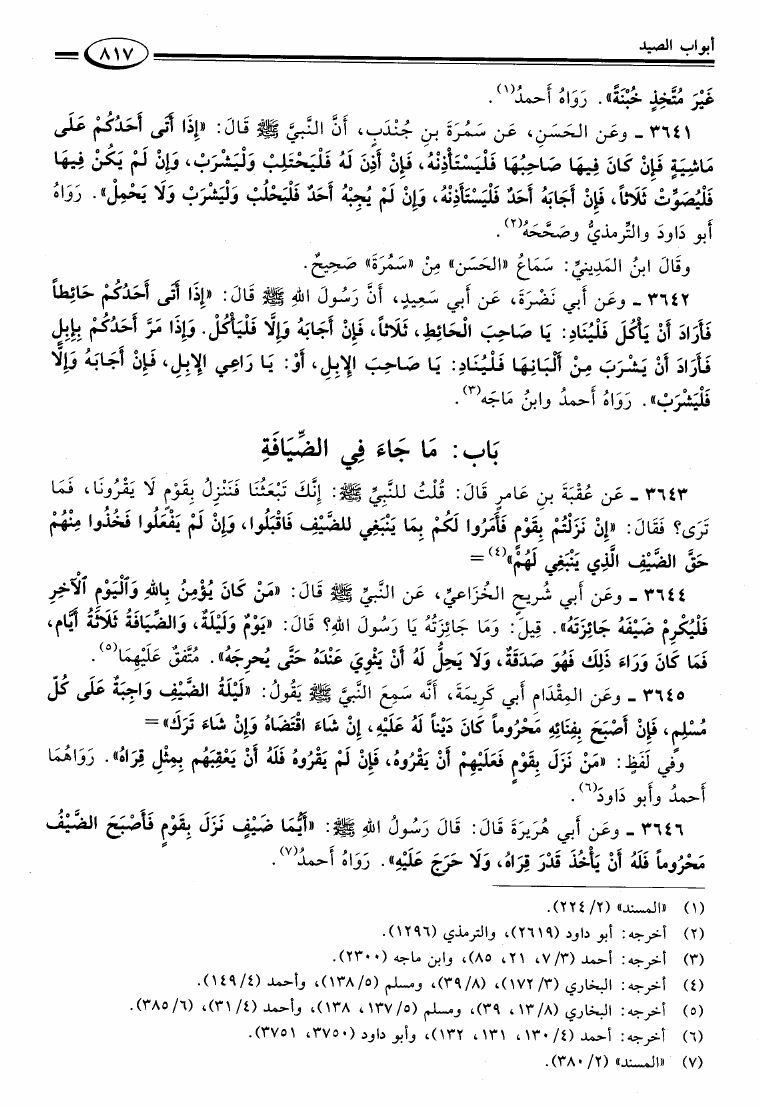 أبواب الصيد
٨١٧
غَيْرَ مُتَّخِذٍ خُبْنَةً». رَوَاهُ أَحمدُ(١).
٣٦٤١ ـ وعَن الحَسَنِ، عَن سَمُرَةَ بنِ جُنْدَبٍ، أَنَّ النَّبيَّ ﷺ قَالَ: «إِذَا أَتَى أَحَدُكُمْ عَلَى
مَاشِيَةٍ فَإِنْ كَانَ فِيهَا صَاحِبُهَا فَلْيَسْتَأْذِنْهُ، فَإِنْ أَذِنَ لَهُ فَلْيَحْتَلِبْ وَلْيَشْرَبْ، وَإِنْ لَمْ يَكُنْ فِيهَا
فَلْيُصَوِّتْ ثَلَاثاً، فَإِنْ أَجَابَهُ أَحَدٌ فَلْيَسْتَأْذِنْهُ، وَإِنْ لَمْ يُجِبْهُ أَحَدٌ فَلْيَحْلُبْ وَلْيَشْرَبْ وَلَا يَحْمِلْ». رَوَاهُ
أَبو دَاودَ والتِّرمذيُّ وصَحَّحَهُ(٢).
وقَالَ ابنُ المَدِينيِّ: سَمَاعُ «الحَسَن» مِنْ «سَمُرَةَ» صَحِيحٌ.
٣٦٤٢ ـ وعَن أَبي نَضْرَةَ، عَن أَبي سَعِيدٍ، أَنَّ رَسُولَ اللهِ ﷺ قَالَ: «إِذَا أَتَى أَحَدُكُمْ حَائِطاً
فَأَرَادَ أَنْ يَأْكُلَ فَلْيُنَادِ: يَا صَاحِبَ الْحَائِطِ، ثَلَاثاً، فَإِنْ أَجَابَهُ وَإِلَّا فَلْيَأْكُلْ. وَإِذَا مَرَّ أَحَدُكُمْ بِإِبِلٍ
فَأَرَادَ أَنْ يَشْرَبَ مِنْ أَلْبَانِهَا فَلْيُنَادِ: يَا صَاحِبَ الإِبِلِ، أَوْ: يَا رَاعِي الإِبِلِ، فَإِنْ أَجَابَهُ وَإِلَّا
فَلْيَشْرَبْ». رَوَاهُ أَحمدُ وابنُ مَاجَه(٣).
بَاب: مَا جَاءَ فِي الضِّيَافَةِ
٣٦٤٣ ـ عَن عُقْبَةَ بنِ عَامرٍ قَالَ: قُلْتُ للنَّبيِّ ﷺ: إِنَّكَ تَبْعَثُنَا فَنَنْزِلُ بِقَوْمٍ لَا يَقْرُونَا، فَمَا
تَرَى؟ فَقَالَ: «إِنْ نَزَلْتُمْ بِقَوْمٍ فَأَمَرُوا لَكُمْ بِمَا يَنْبَغِي للضَّيْفِ فَاقْبَلُوا، وَإِنْ لَمْ يَفْعَلُوا فَخُذُوا مِنْهُمْ
حَقَّ الضَّيْفِ الَّذِي يَنْبَغِي لَهُمْ»(٤)=
٣٦٤٤ ـ وعَن أَبي شُريحٍ الخُزَاعيِّ، عَن النَّبيِّ ﷺ قَالَ: «مَنْ كَانَ يُؤْمِنُ بِاللهِ وَالْيَوْمِ الْآخِرِ
فَلْيُكْرِمْ ضَيْفَهُ جَائِزَتَهُ». قِيلَ: وَمَا جَائِزَتُهُ يَا رَسُولَ اللهِ؟ قَالَ: «يَوْمٌ وَلَيْلَةٌ، وَالضِّيَافَةُ ثَلَاثَةُ أَيَّامٍ،
فَمَا كَانَ وَرَاءَ ذَلِكَ فَهُوَ صَدَقَةٌ، وَلَا يَحِلُّ لَهُ أَنْ يَثْوِيَ عَنْدَهُ حَتَّى يُحرِجَهُ». مُتَّفقٌ عَلَيْهِمَا(٥).
٣٦٤٥ ـ وعَن المِقْدَامِ أَبي كَرِيمَةَ، أَنَّه سَمِعَ النَّبيَّ ﷺ يَقُولُ: «لَيْلَةُ الضَّيْفِ وَاجِبَةٌ عَلَى كُلِّ
مُسْلِمٍ، فَإِنْ أَصْبَحَ بِفِنَائِهِ مَحْرُوماً كَانَ دَيْناً لَهُ عَلَيْهِ، إِنْ شَاءَ اقْتَضَاهُ وَإِنْ شَاءَ تَرَكَ»=
وفي لَفظٍ: «مَنْ نَزَلَ بِقَوْمٍ فَعَلَيْهِمْ أَنْ يَقْرُوهُ، فَإِنْ لَمْ يَقْرُوهُ فَلَهُ أَنْ يَعْقِبَهُم بِمِثْلِ قِرَاهُ». رَوَاهُمَا
أَحمدُ وأَبو دَاودَ(٦).
٣٦٤٦ ـ وعَن أَبي هُرَيرَةَ قَالَ: قَالَ رَسُولُ اللهِ ﷺ: «أَيُّمَا ضَيْفٍ نَزَلَ بِقَوْمٍ فَأَصْبَحَ الضَّيْفُ
مَحْرُوماً فَلَهُ أَنْ يَأْخُذَ قَدْرَ قِرَاهُ، وَلَا حَرَجَ عَلَيْهِ». رَوَاهُ أَحمدُ(٧).
(١) «المسند» (٢/ ٢٢٤).
(٢) أخرجه: أبو داود (٢٦١٩)، والترمذي (١٢٩٦).
(٣) أخرجه: أحمد (٣/ ٧، ٢١، ٨٥)، وابن ماجه (٢٣٠٠).
(٤) أخرجه: البخاري (٣/ ١٧٢)، (٨/ ٣٩)، ومسلم (٥/ ١٣٨)، وأحمد (٤/ ١٤٩).
(٥) أخرجه: البخاري (٨/ ١٣، ٣٩)، ومسلم (٥/ ١٣٧، ١٣٨)، وأحمد (٤/ ٣١)، (٦/ ٣٨٥).
(٦) أخرجه: أحمد (٤/ ١٣٠، ١٣١، ١٣٢)، وأبو داود (٣٧٥٠، ٣٧٥١).
(٧) «المسند» (٢/ ٣٨٠).